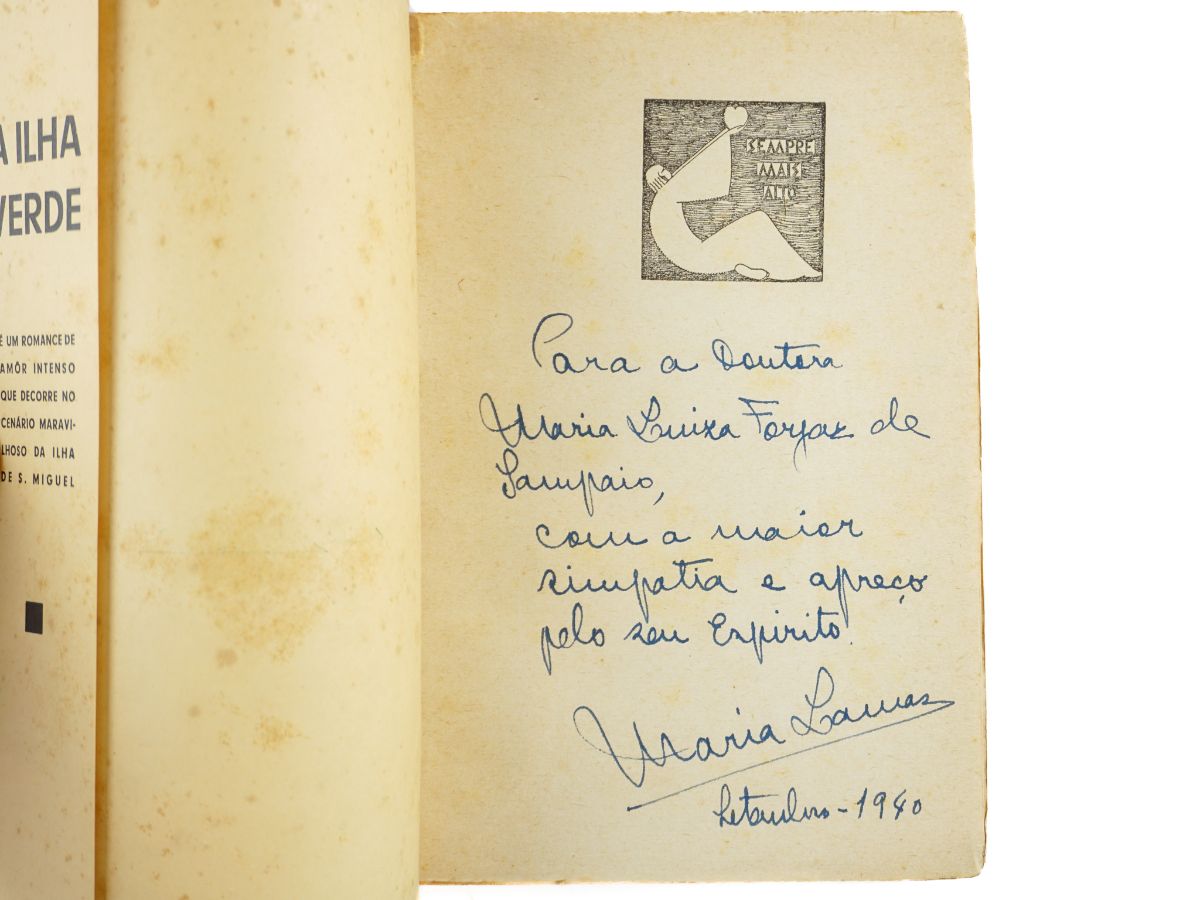 A ILHA
VERDE
É UM ROMANCE DE
AMÔR INTENSO
QUE DECORRE NO
CENÁRIO MARAVI-
LHOSO DA ILHA
DE S. MIGUEL
SEMPRE
MAIS
ALTO
Para a Doutora
Maria Luiza Forjaz de
Sampaio,
com a maior
simpatia e apreço
pelo seu Espirito.
Maria Lamas
Setembro - 1940